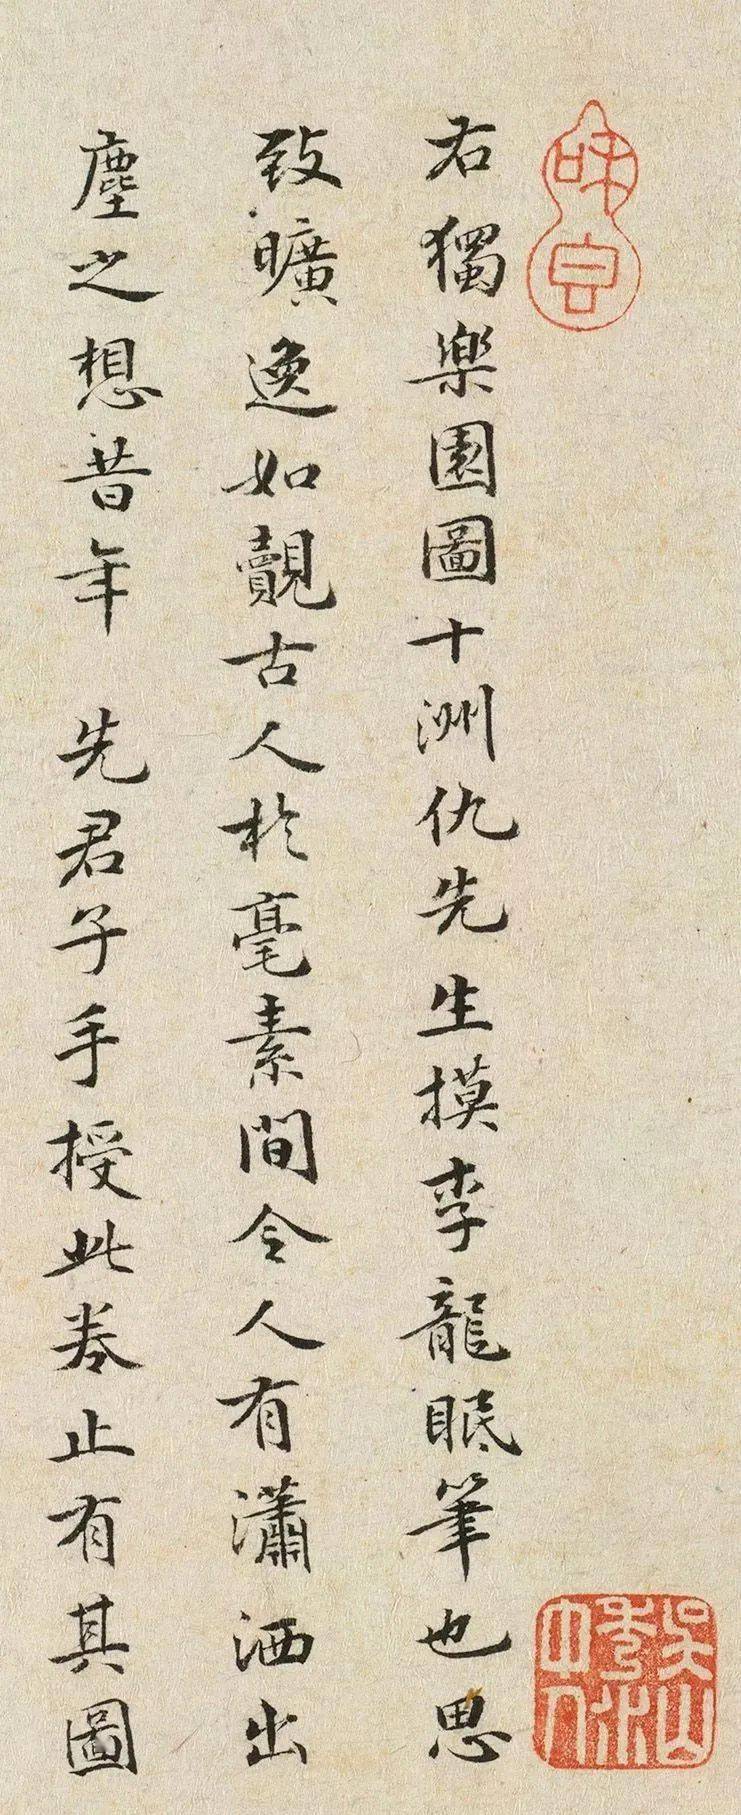 右獨樂園圖十洲仇先生摸李龍眠筆也思
致曠逸如覿古人於毫素間令人有瀟洒出
塵之想昔年 先君子手授此卷止有其圖